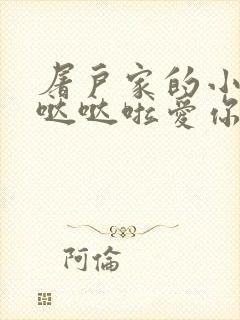 屠户家的小
哒哒啦爱你
阿倫